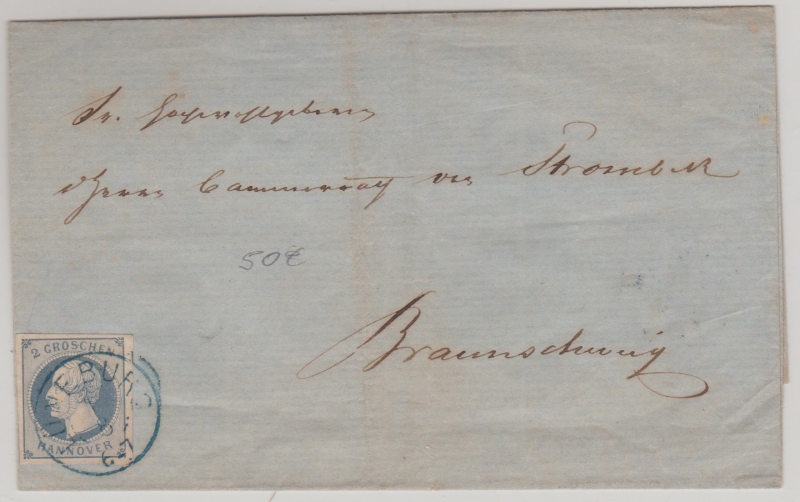 Sr. Hochwohlgeboren
Herrn Cammerrath von Strombeck
50€
Braunschweig
2 GROSCHEN
HANNOVER